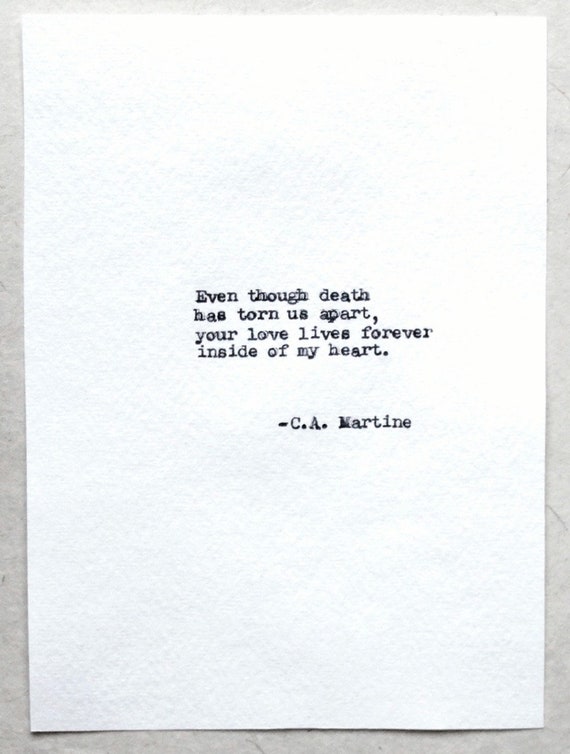 Even though death
has torn us apart,
your love lives forever
inside of my heart.
-C.A. Martine